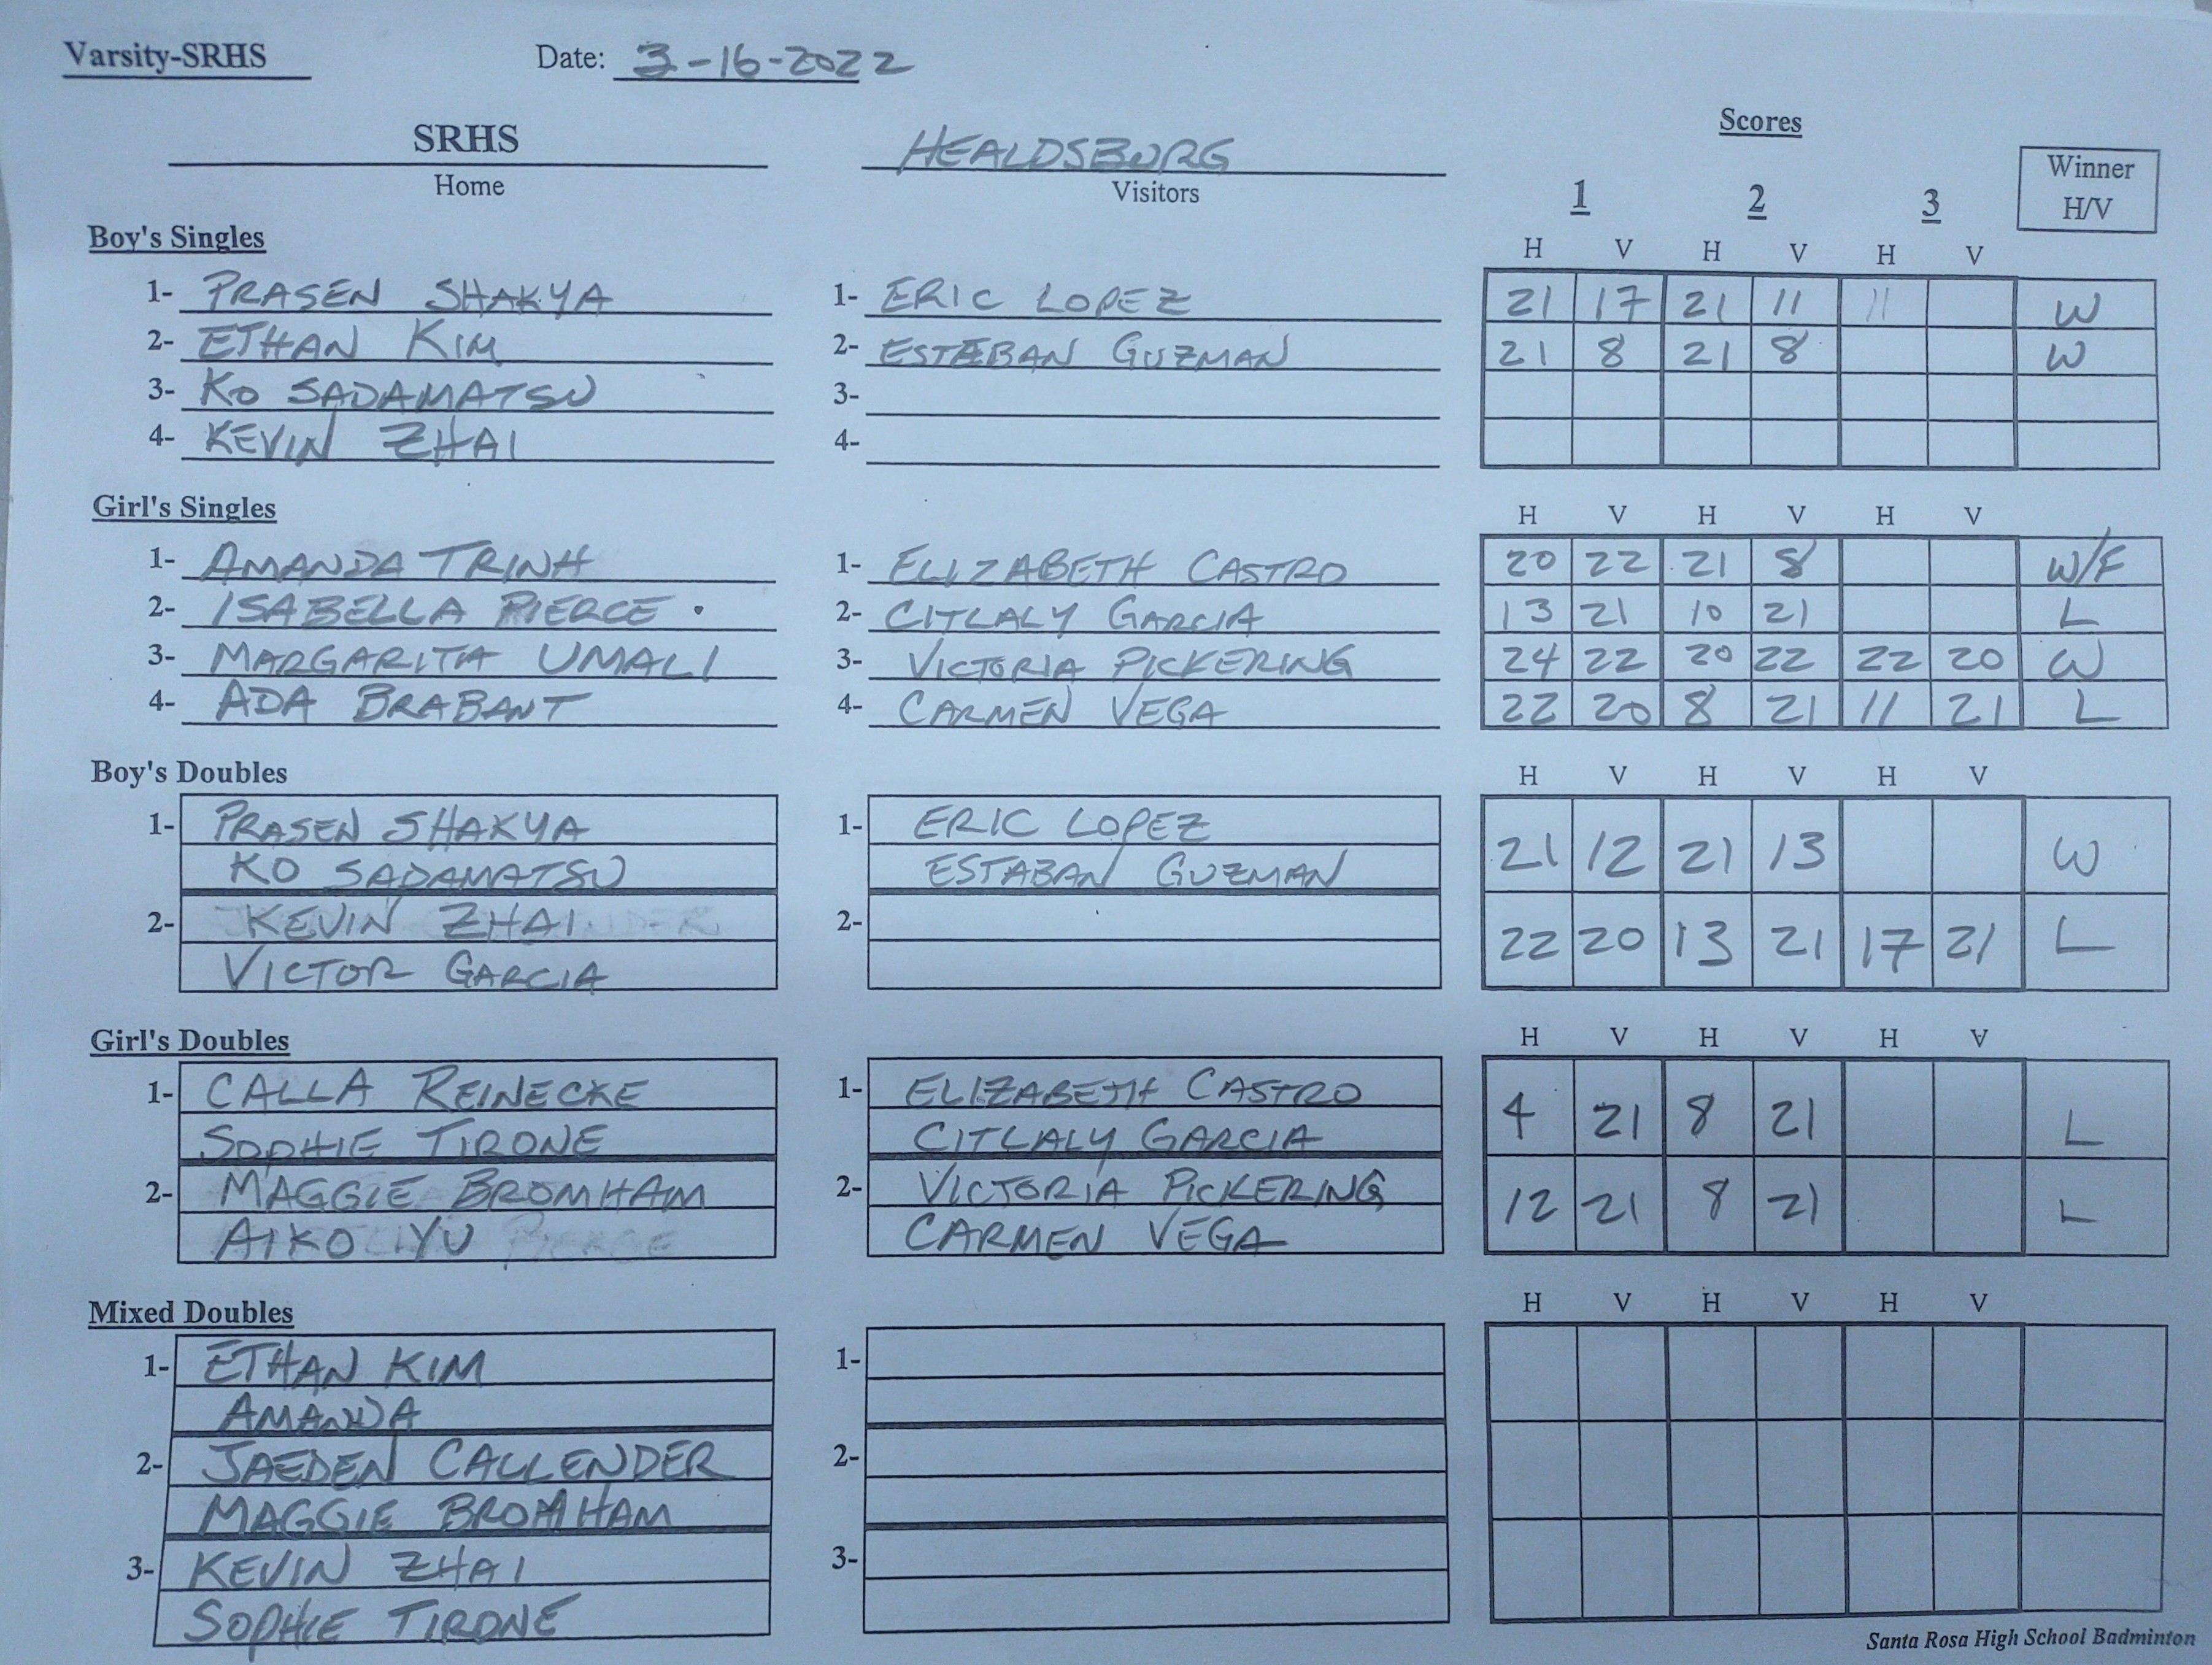 Varsity-SRHS Date: 3-16-2022
Scores
SRHS HEALDSBURG
Home Visitors
Winner
H/V
1 2 3
Boy's Singles H V H V H V
1- PRASEN SHAKYA 1- ERIC LOPEZ 21 17 21 11 11 W
2- ETHAN KIM 2- ESTEBAN GUZMAN 21 8 21 8 W
3- KO SADAMATSU 3-
4- KEVIN ZHAI 4-
Girl's Singles H V H V H V
1- AMANDA TRINH 1- ELIZABETH CASTRO 20 22 21 8 W/F
2- ISABELLA PIERCE 2- CITLALY GARCIA 13 21 10 21 L
3- MARGARITA UMALI 3- VICTORIA PICKERING 24 22 20 22 22 20 W
4- ADA BRABANT 4- CARMEN VEGA 22 20 8 21 11 21 L
Boy's Doubles H V H V H V
1- PRASEN SHAKYA 1- ERIC LOPEZ 21 12 21 13 W
KO SADAMATSU ESTABAN GUZMAN
2- KEVIN ZHAI 2- 22 20 13 21 17 21 L
VICTOR GARCIA
Girl's Doubles H V H V H V
1- CALLA REINECKE 1- ELIZABETH CASTRO 4 21 8 21 L
SOPHIE TIRONE CITLALY GARCIA
2- MAGGIE BROMHAM 2- VICTORIA PICKERING 12 21 8 21 L
AIKO YU CARMEN VEGA
Mixed Doubles H V H V H V
1- ETHAN KIM 1-
AMANDA
2- JAEDEN CALLENDER 2-
MAGGIE BROMHAM
3- KEVIN ZHAI 3-
SOPHIE TIRONE
Santa Rosa High School Badminton